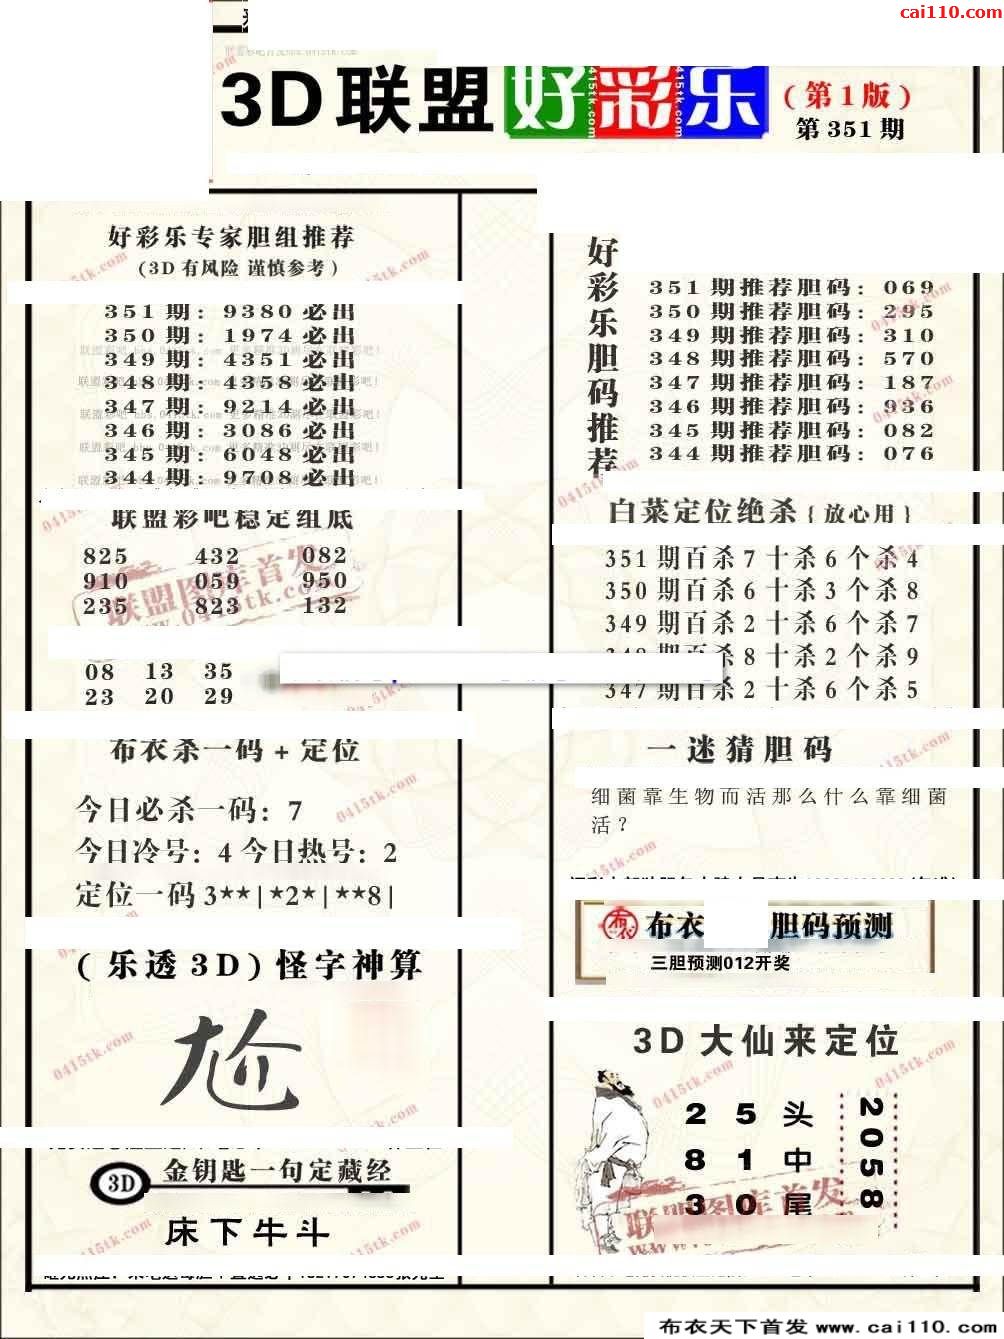 cai110.com
3D联盟好彩乐(第1版)
第351期
好彩乐专家胆组推荐
(3D有风险 谨慎参考)
351期: 9380必出
350期: 1974必出
349期: 4351必出
348期: 4358必出
347期: 9214必出
346期: 3086必出
345期: 6048必出
344期: 9708必出
联盟彩吧稳定组底
825 432 082
910 059 950
235 823 132
08 13 35
23 20 29
布衣杀一码+定位
今日必杀一码: 7
今日冷号: 4 今日热号: 2
定位一码 3**|*2*|**8|
(乐透3D)怪字神算
尬
3D 金钥匙一句定藏经
床下牛斗
好彩乐胆码推荐
351期推荐胆码: 069
350期推荐胆码: 295
349期推荐胆码: 310
348期推荐胆码: 570
347期推荐胆码: 187
346期推荐胆码: 936
345期推荐胆码: 082
344期推荐胆码: 076
白菜定位绝杀{放心用}
351期百杀7十杀6个杀4
350期百杀6十杀3个杀8
349期百杀2十杀6个杀7
348期百杀8十杀2个杀9
347期百杀2十杀6个杀5
一迷猜胆码
细菌靠生物而活那么什么靠细菌
活?
布衣 胆码预测
三胆预测012开奖
3D大仙来定位
2 5 头
8 1 中
3 0 尾
2058
联盟图库首发
0415tk.com
布衣天下首发 www.cai110.com